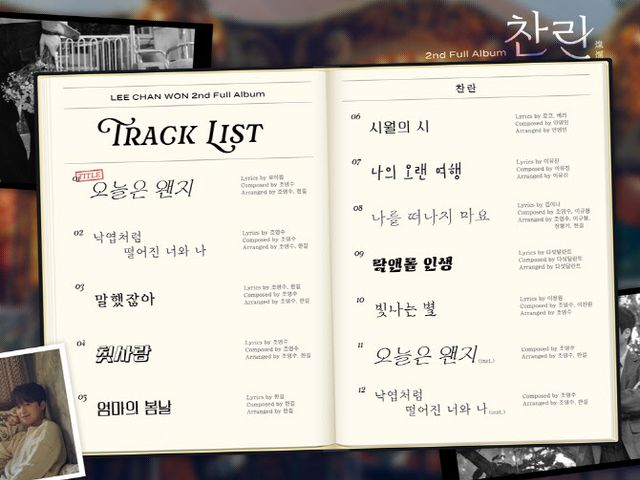 2nd Full Album 찬란
LEE CHAN WON 2nd Full Album
TRACK LIST
TITLE
01 오늘은 왠지
Lyrics by 로이킴
Composed by 조영수
Arranged by 조영수, 한길
02 낙엽처럼
떨어진 너와 나
Lyrics by 조영수
Composed by 조영수
Arranged by 조영수, 한길
03 말했잖아
Lyrics by 조영수, 한길
Composed by 조영수
Arranged by 조영수, 한길
04 첫사랑
Lyrics by 조영수
Composed by 조영수
Arranged by 조영수, 한길
05 엄마의 봄날
Lyrics by 한길
Composed by 한길
Arranged by 한길
찬란
06 시월의 시
Lyrics by 로코, 베리
Composed by
Arranged by
07 나의 오랜 여행
Lyrics by 이유진
Composed by 이유진
Arranged by 이유진
08 나를 떠나지 마요
Lyrics by 김이나
Composed by 조영수, 이규형
Arranged by 조영수, 이규형,
09 락앤롤 인생
Lyrics by 다섯달란트
Composed by 다섯달란트
Arranged by 다섯달란트
10 빛나는 별
Lyrics by 이찬원
Composed by 조영수, 이찬원
Arranged by 조영수
11 오늘은 왠지 (inst.)
Composed by 조영수
Arranged by 조영수, 한길
12 낙엽처럼
떨어진 너와 나 (inst.)
Composed by 조영수
Arranged by 조영수, 한길